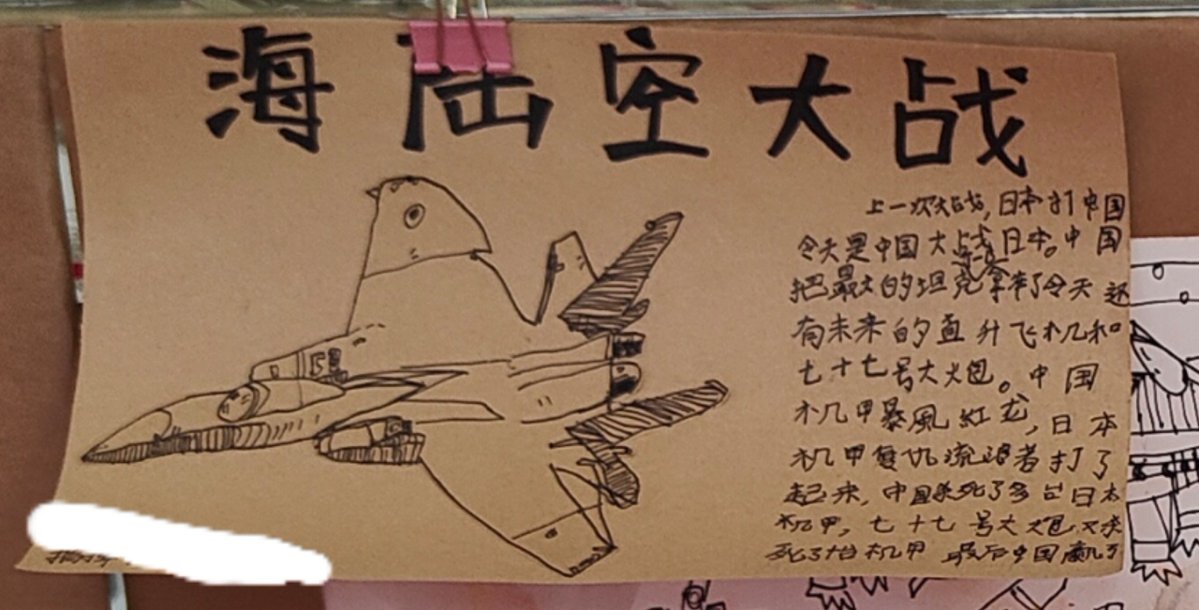 海陆空大战
上一次大战,日本打中国
今天是中国大战日本。中国
把最大的坦克拿来了今天还
有未来的直升飞机和
七十七号大炮。中国
机甲暴風紅龙,日本
机甲复仇流浪者打了
起来,中国杀死了多台日本
机甲,七十七号大炮又杀
死了1台机甲 最后中国赢了